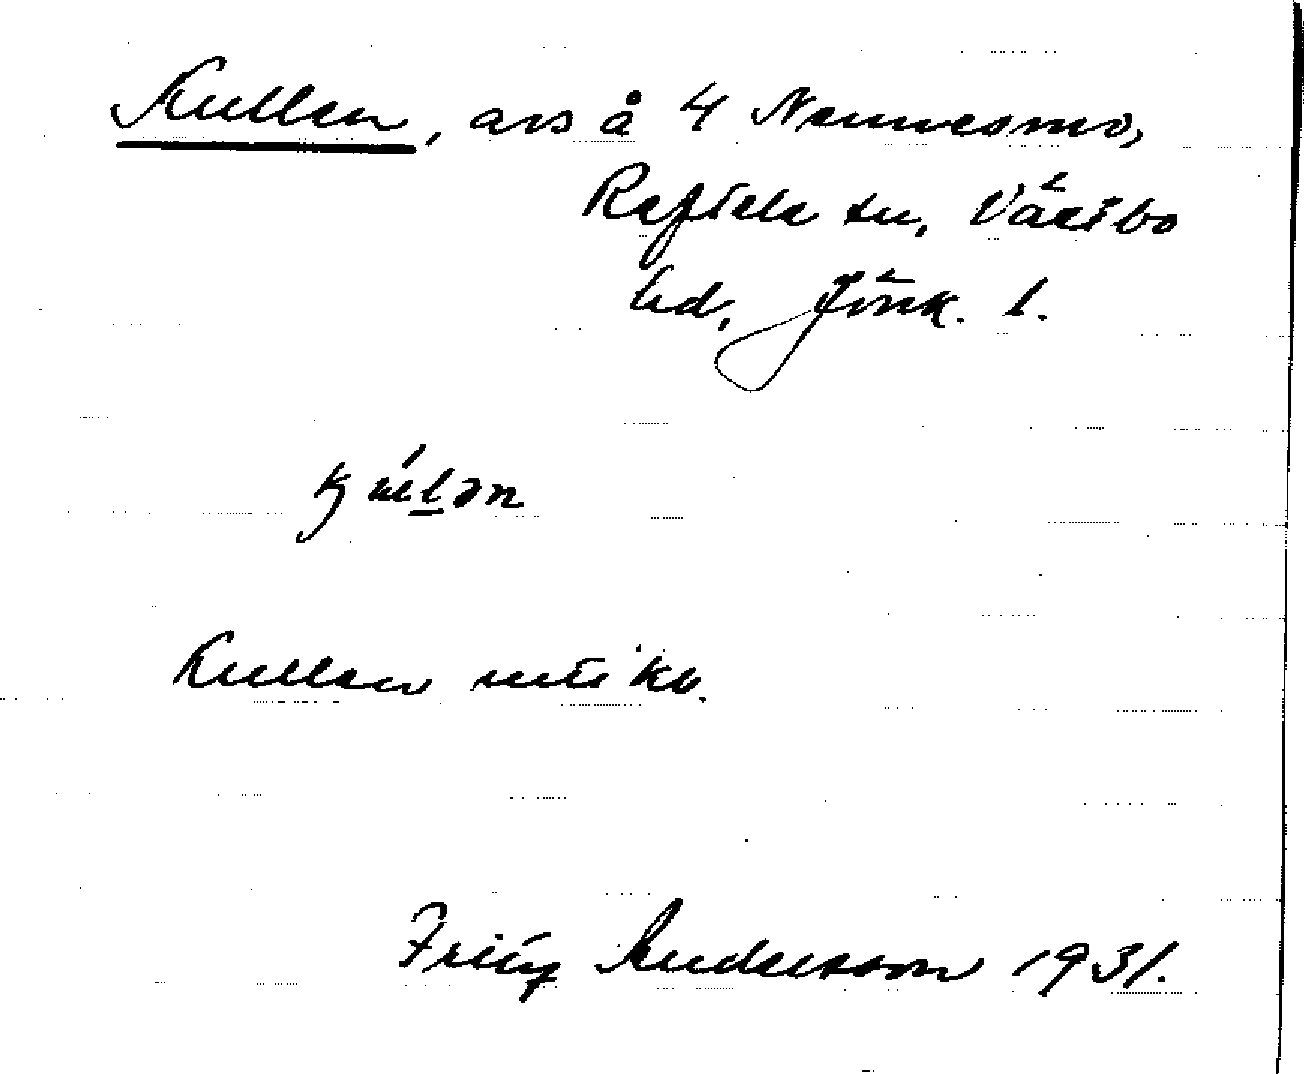 Kullen, avs å 4 Nennesmo,
Reftele sn, Västbo
hd, Jönk. l.
kúl̲ən
Kullen
Fritz Andersson 1931.